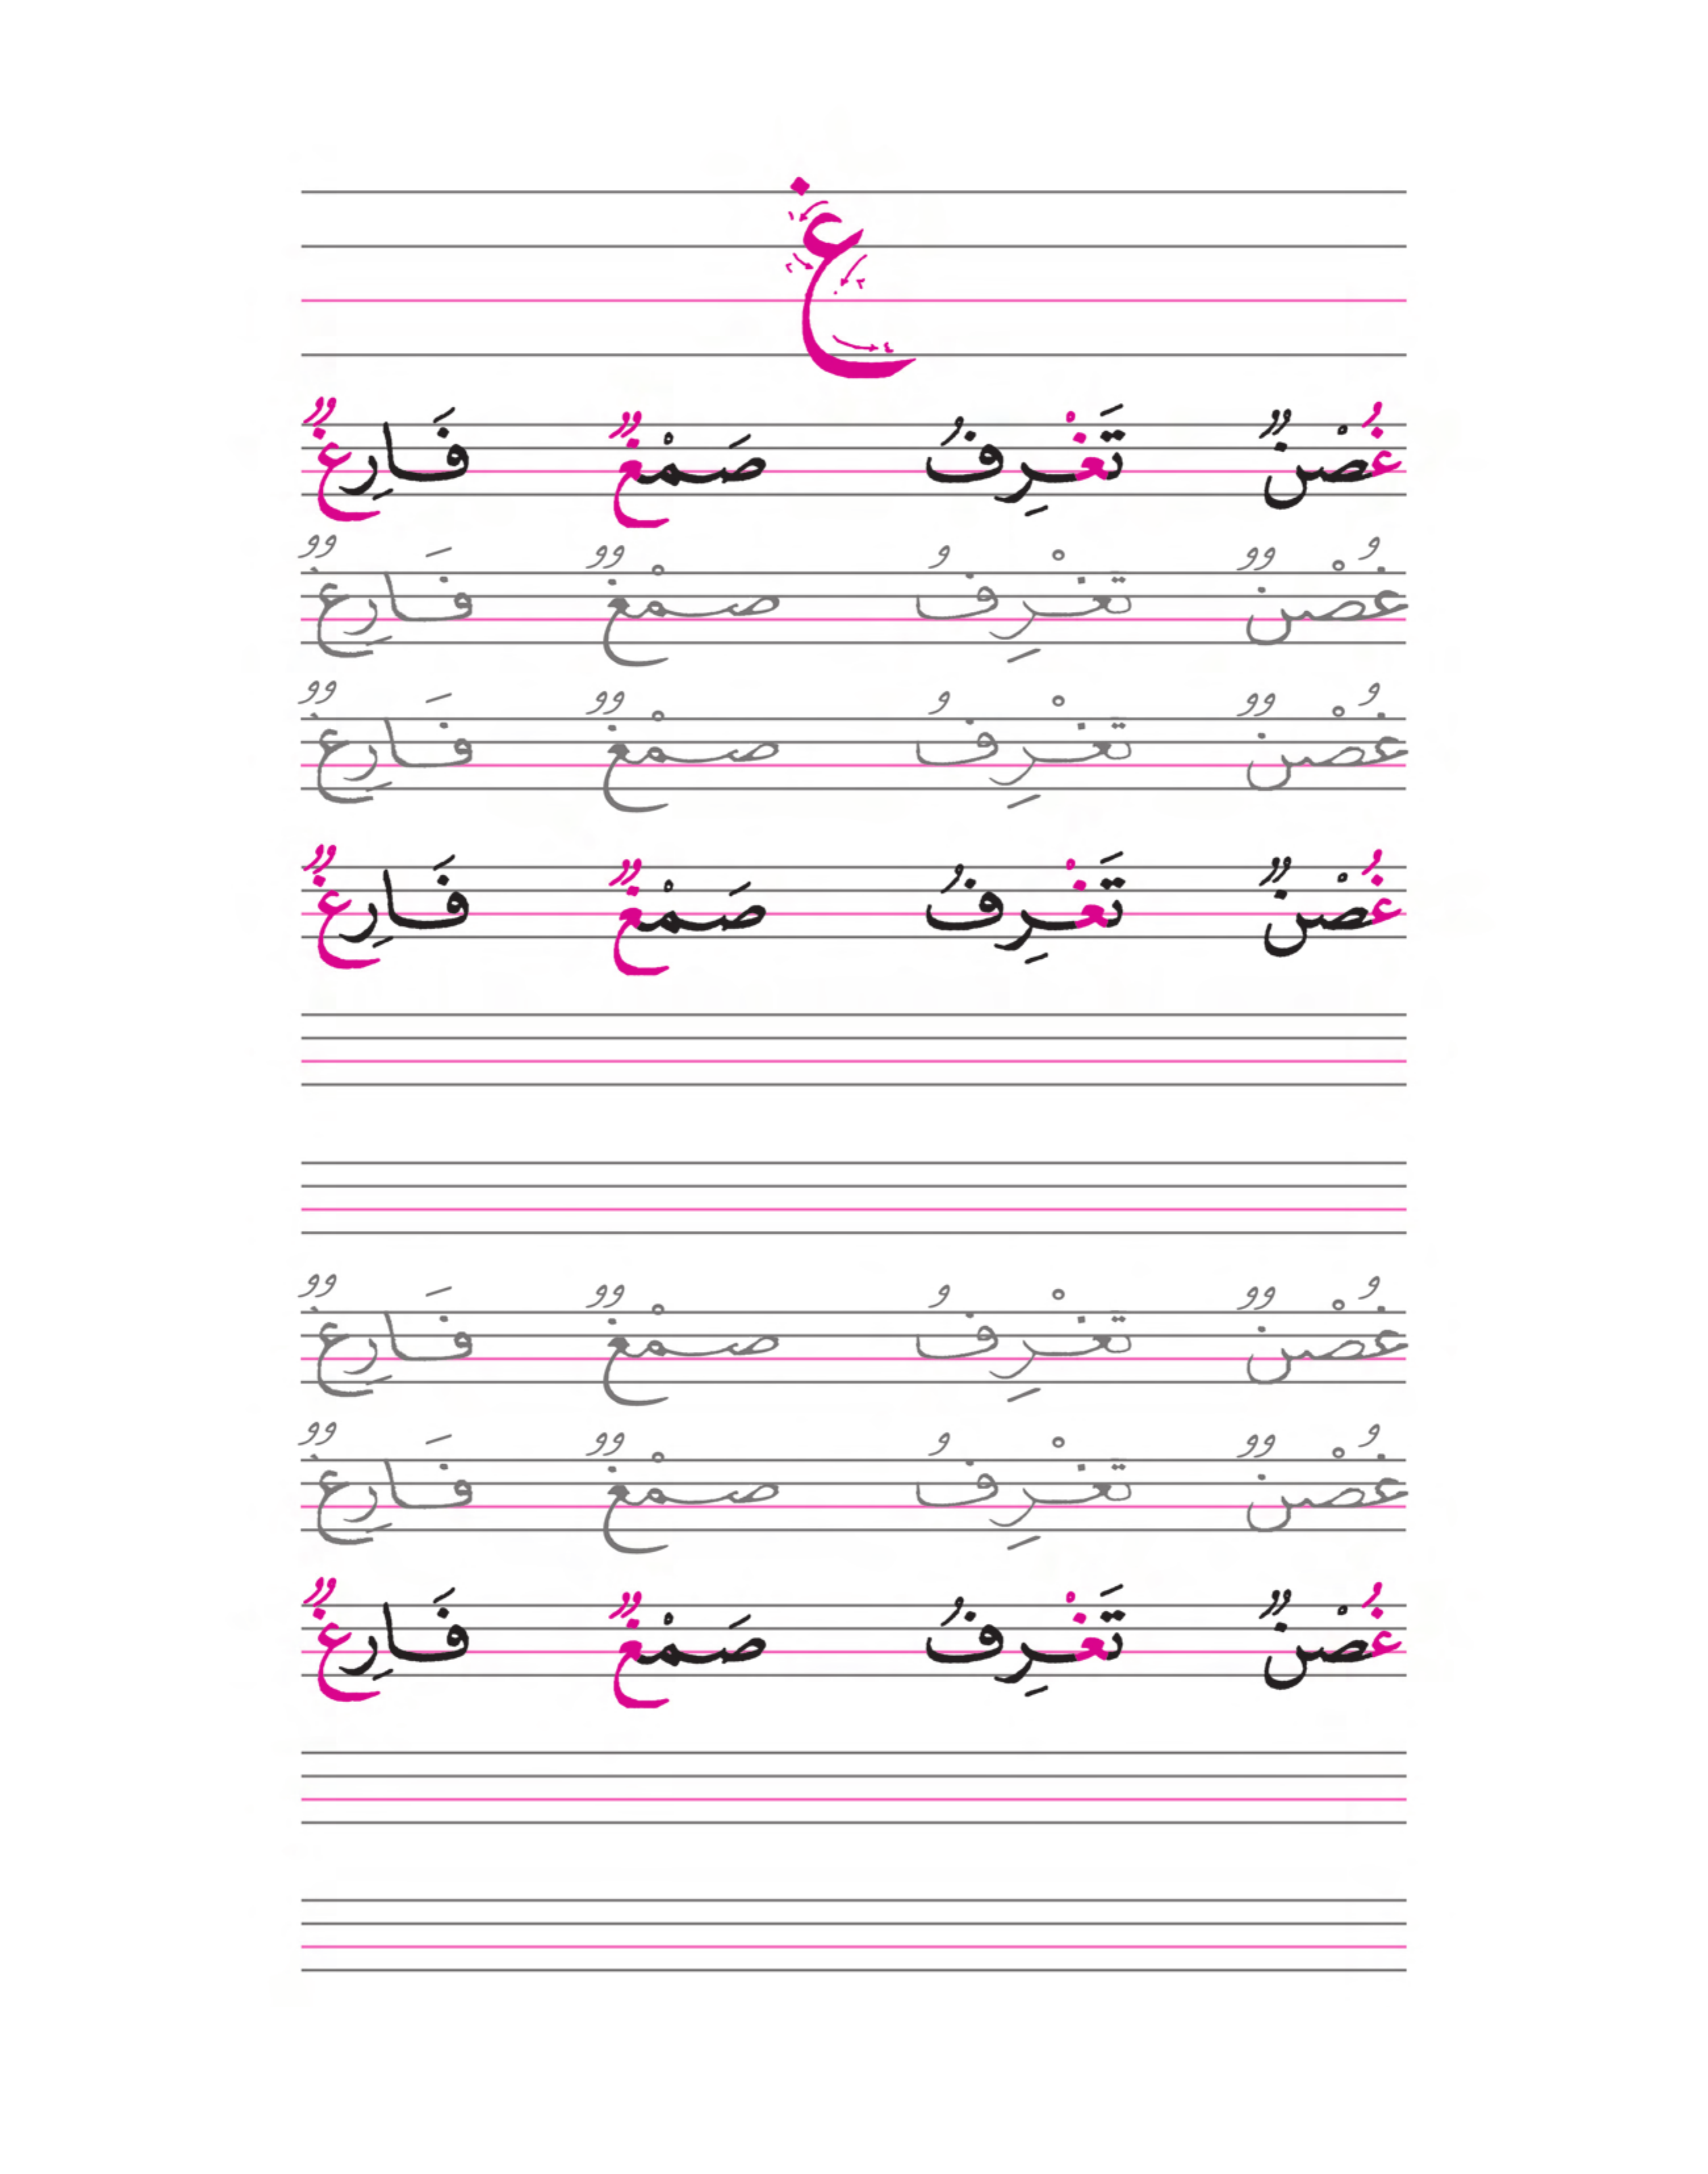 غ
غُصْنٌ تَغْرِفُ صَمْغٌ فَارِغٌ
غُصْنٌ تَغْرِفُ صَمْغٌ فَارِغٌ
غُصْنٌ تَغْرِفُ صَمْغٌ فَارِغٌ
غُصْنٌ تَغْرِفُ صَمْغٌ فَارِغٌ
غُصْنٌ تَغْرِفُ صَمْغٌ فَارِغٌ
غُصْنٌ تَغْرِفُ صَمْغٌ فَارِغٌ
غُصْنٌ تَغْرِفُ صَمْغٌ فَارِغٌ